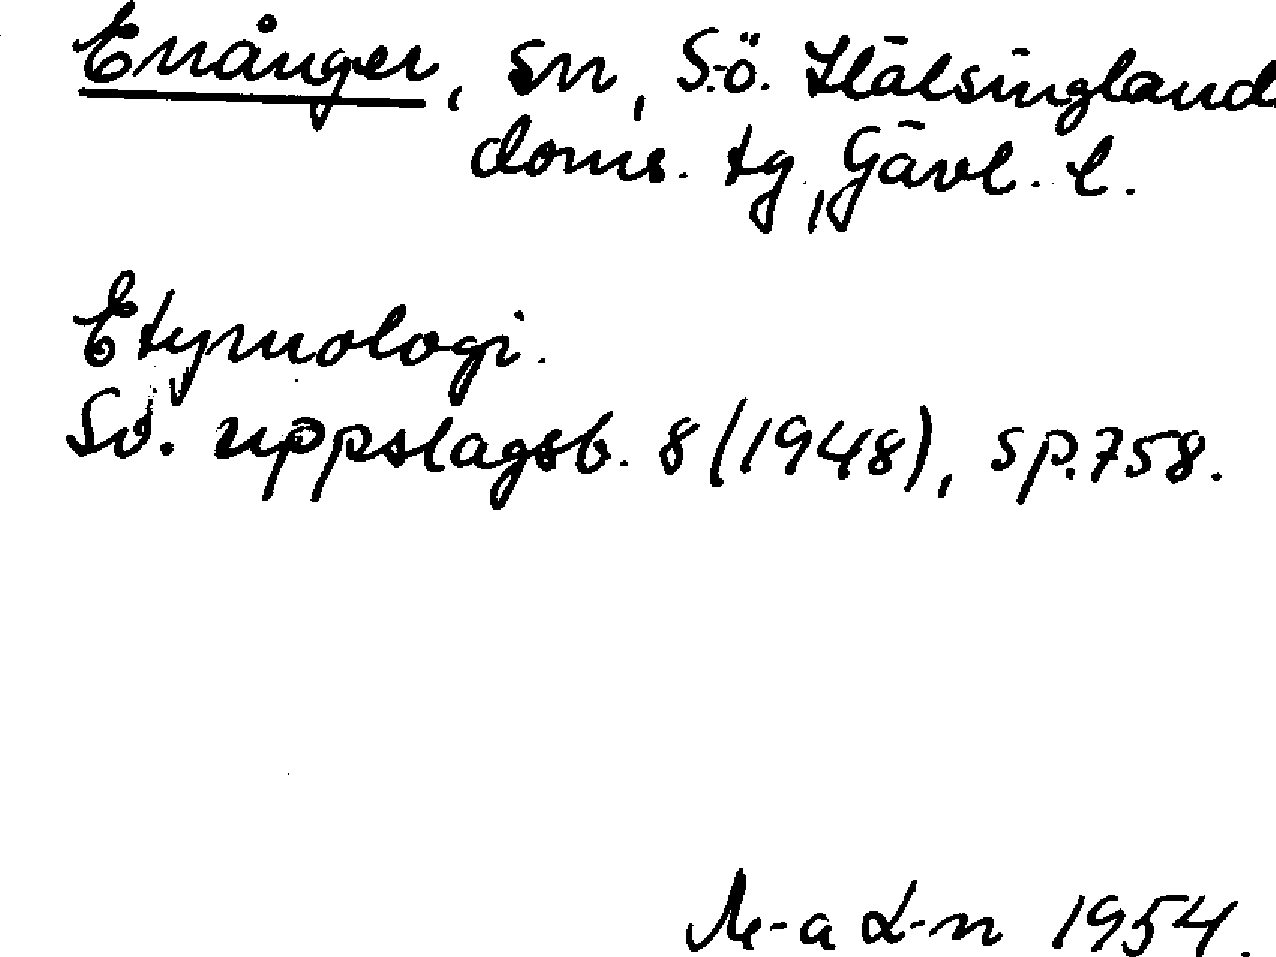 Enånger, sn, S.ö. Hälsingland
doms. tg, Gävl. l.
Etymologi.
Sv. uppslagsb. 8 (1948), sp. 758.
M-a L-n 1954.